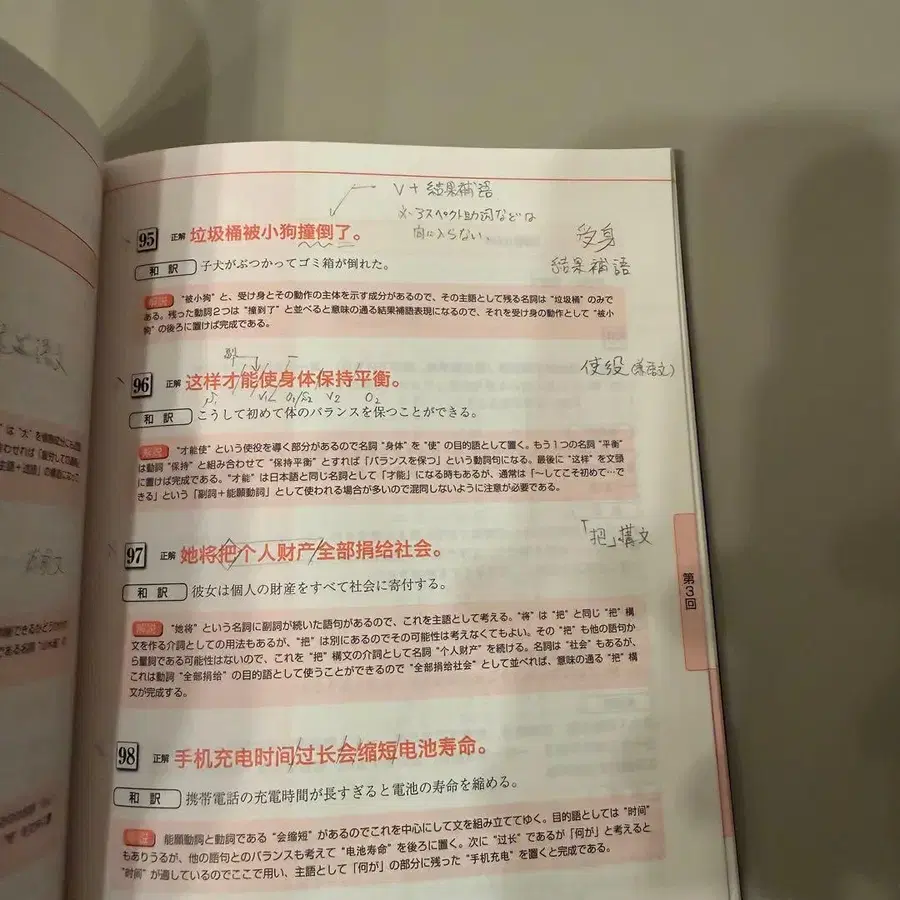 V+結果補語
※アスペクト助詞などは
間に入らない。
95 正解 垃圾桶被小狗撞倒了。
受身
結果補語
和訳 子犬がぶつかってゴミ箱が倒れた。
解説 "被小狗"と、受け身とその動作の主体を示す成分があるので、その主語として残る名詞は"垃圾桶"のみで
ある。残った動詞2つは"撞到了"と並べると意味の通る結果補語表現になるので、それを受け身の動作として"被小
狗"の後ろに置けば完成である。
使役(兼語文)
96 正解 这样才能使身体保持平衡。
V1 O1/S2 V2 O2
和訳 こうして初めて体のバランスを保つことができる。
解説 "才能使"という使役を導く部分があるので名詞"身体"を"使"の目的語として置く。もう1つの名詞"平衡"
は動詞"保持"と組み合わせて"保持平衡"とすれば「バランスを保つ」という動詞句になる。最後に"这样"を文頭
に置けば完成である。"才能"は日本語と同じ名詞として「才能」になる時もあるが、通常は「〜してこそ初めて…で
きる」という「副詞+能願動詞」として使われる場合が多いので混同しないように注意が必要である。
「把」構文
97 正解 她将把个人财产全部捐给社会。
和訳 彼女は個人の財産をすべて社会に寄付する。
解説 "她将"という名詞に副詞が続いた語句があるので、これを主語として考える。"将"は"把"と同じ"把"構
文を作る介詞としての用法もあるが、"把"は別にあるのでその可能性は考えなくてもよい。その"把"も他の語句か
ら量詞である可能性はないので、これを"把"構文の介詞として名詞"个人财产"を続ける。名詞は"社会"もあるが、
これは動詞"全部捐给"の目的語として使うことができるので"全部捐给社会"として並べれば、意味の通る"把"構
文が完成する。
第3回
98 正解 手机充电时间过长会缩短电池寿命。
和訳 携帯電話の充電時間が長すぎると電池の寿命を縮める。
解説 能願動詞と動詞である"会缩短"があるのでこれを中心にして文を組み立ててゆく。目的語としては"时间"
もありうるが、他の語句とのバランスも考えて"电池寿命"を後ろに置く。次に"过长"であるが「何が」と考えると
"时间"が適しているのでここで用い、主語として「何が」の部分に残った"手机充电"を置くと完成である。